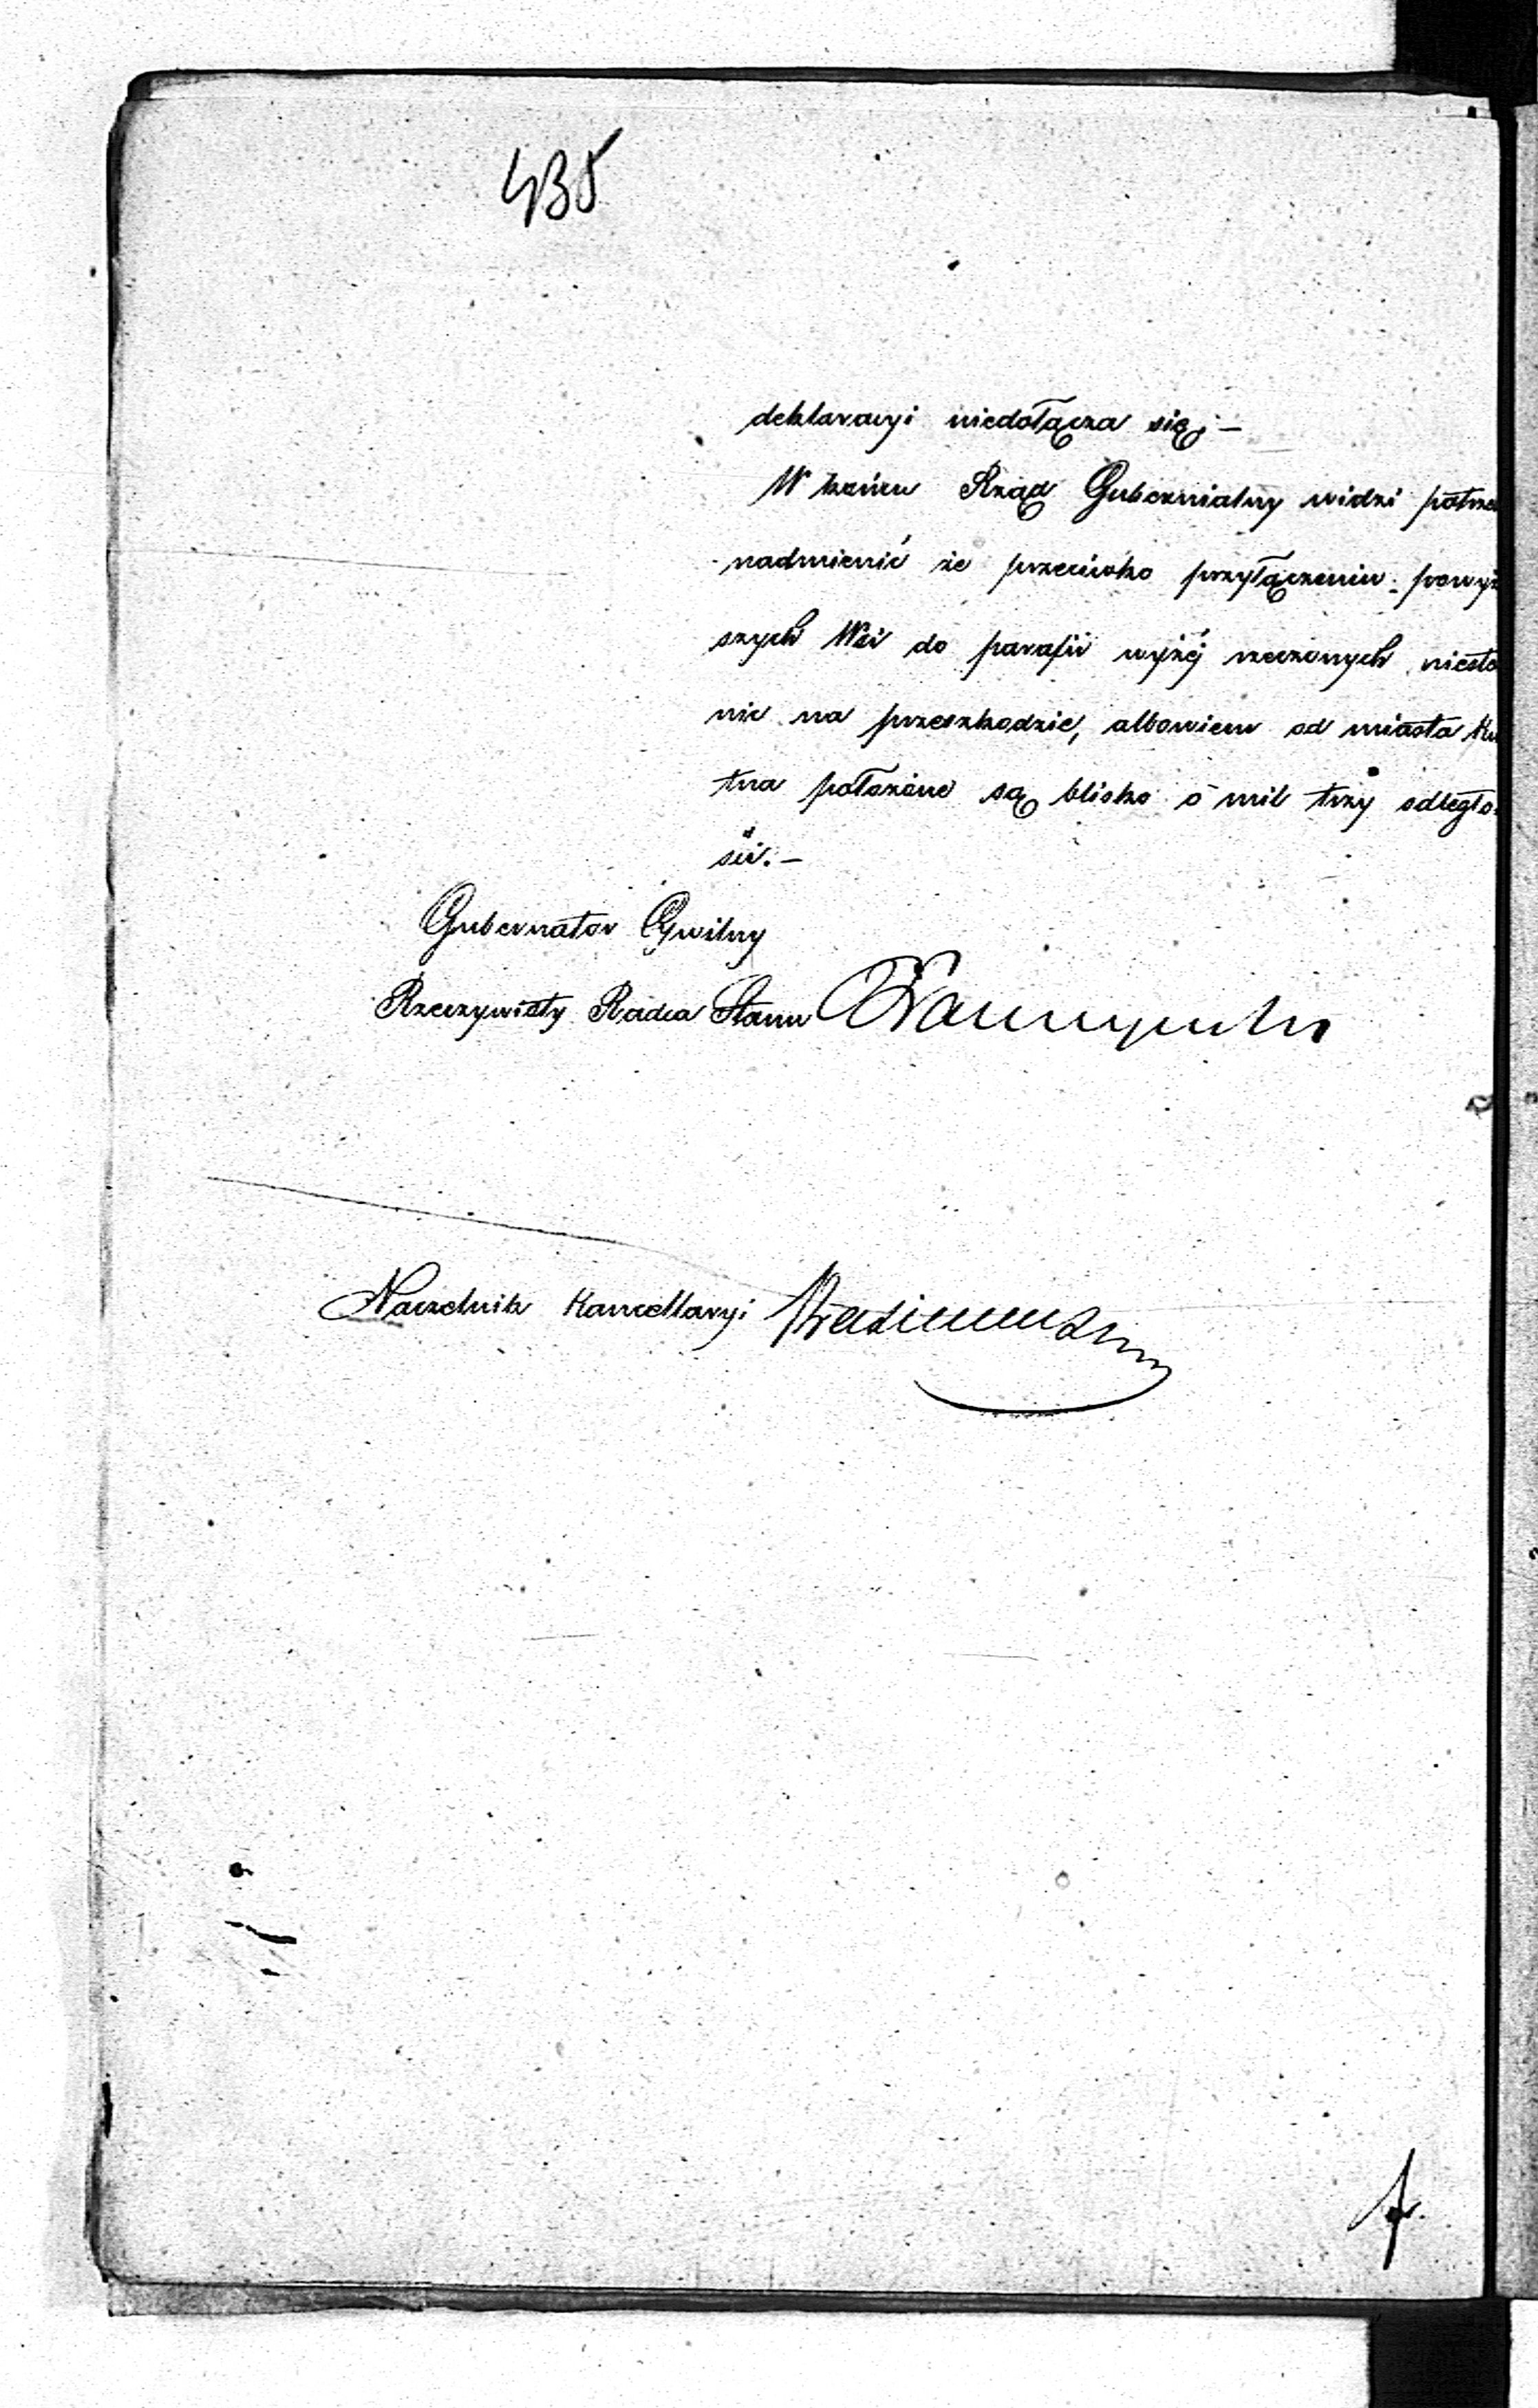 435
deklaracyi niedołącza się;—
W końcu Rząd Gubernialny widzi potrze
nadmienić że przeciwko przyłączeniu powyż
szych Wsi do parafii wyżéj rzeczonych niesto
nic na przeszkodzie, albowiem od miasta Ku
tna położone są blisko o mil trzy odległo
ści.—
Gubernator Cywilny
Rzeczywisty Radca Stanu
Naczelnik Kancellaryi